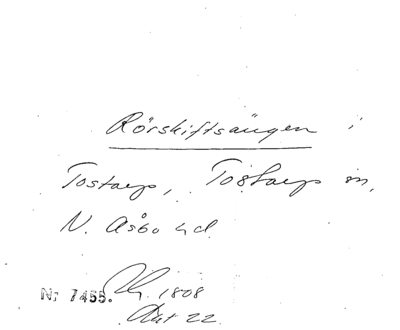 Rörskiftsängen i
Tostarp, Tostarp sn,
N. Åsbo hd.
Nr 7455. 1808
Akt 22